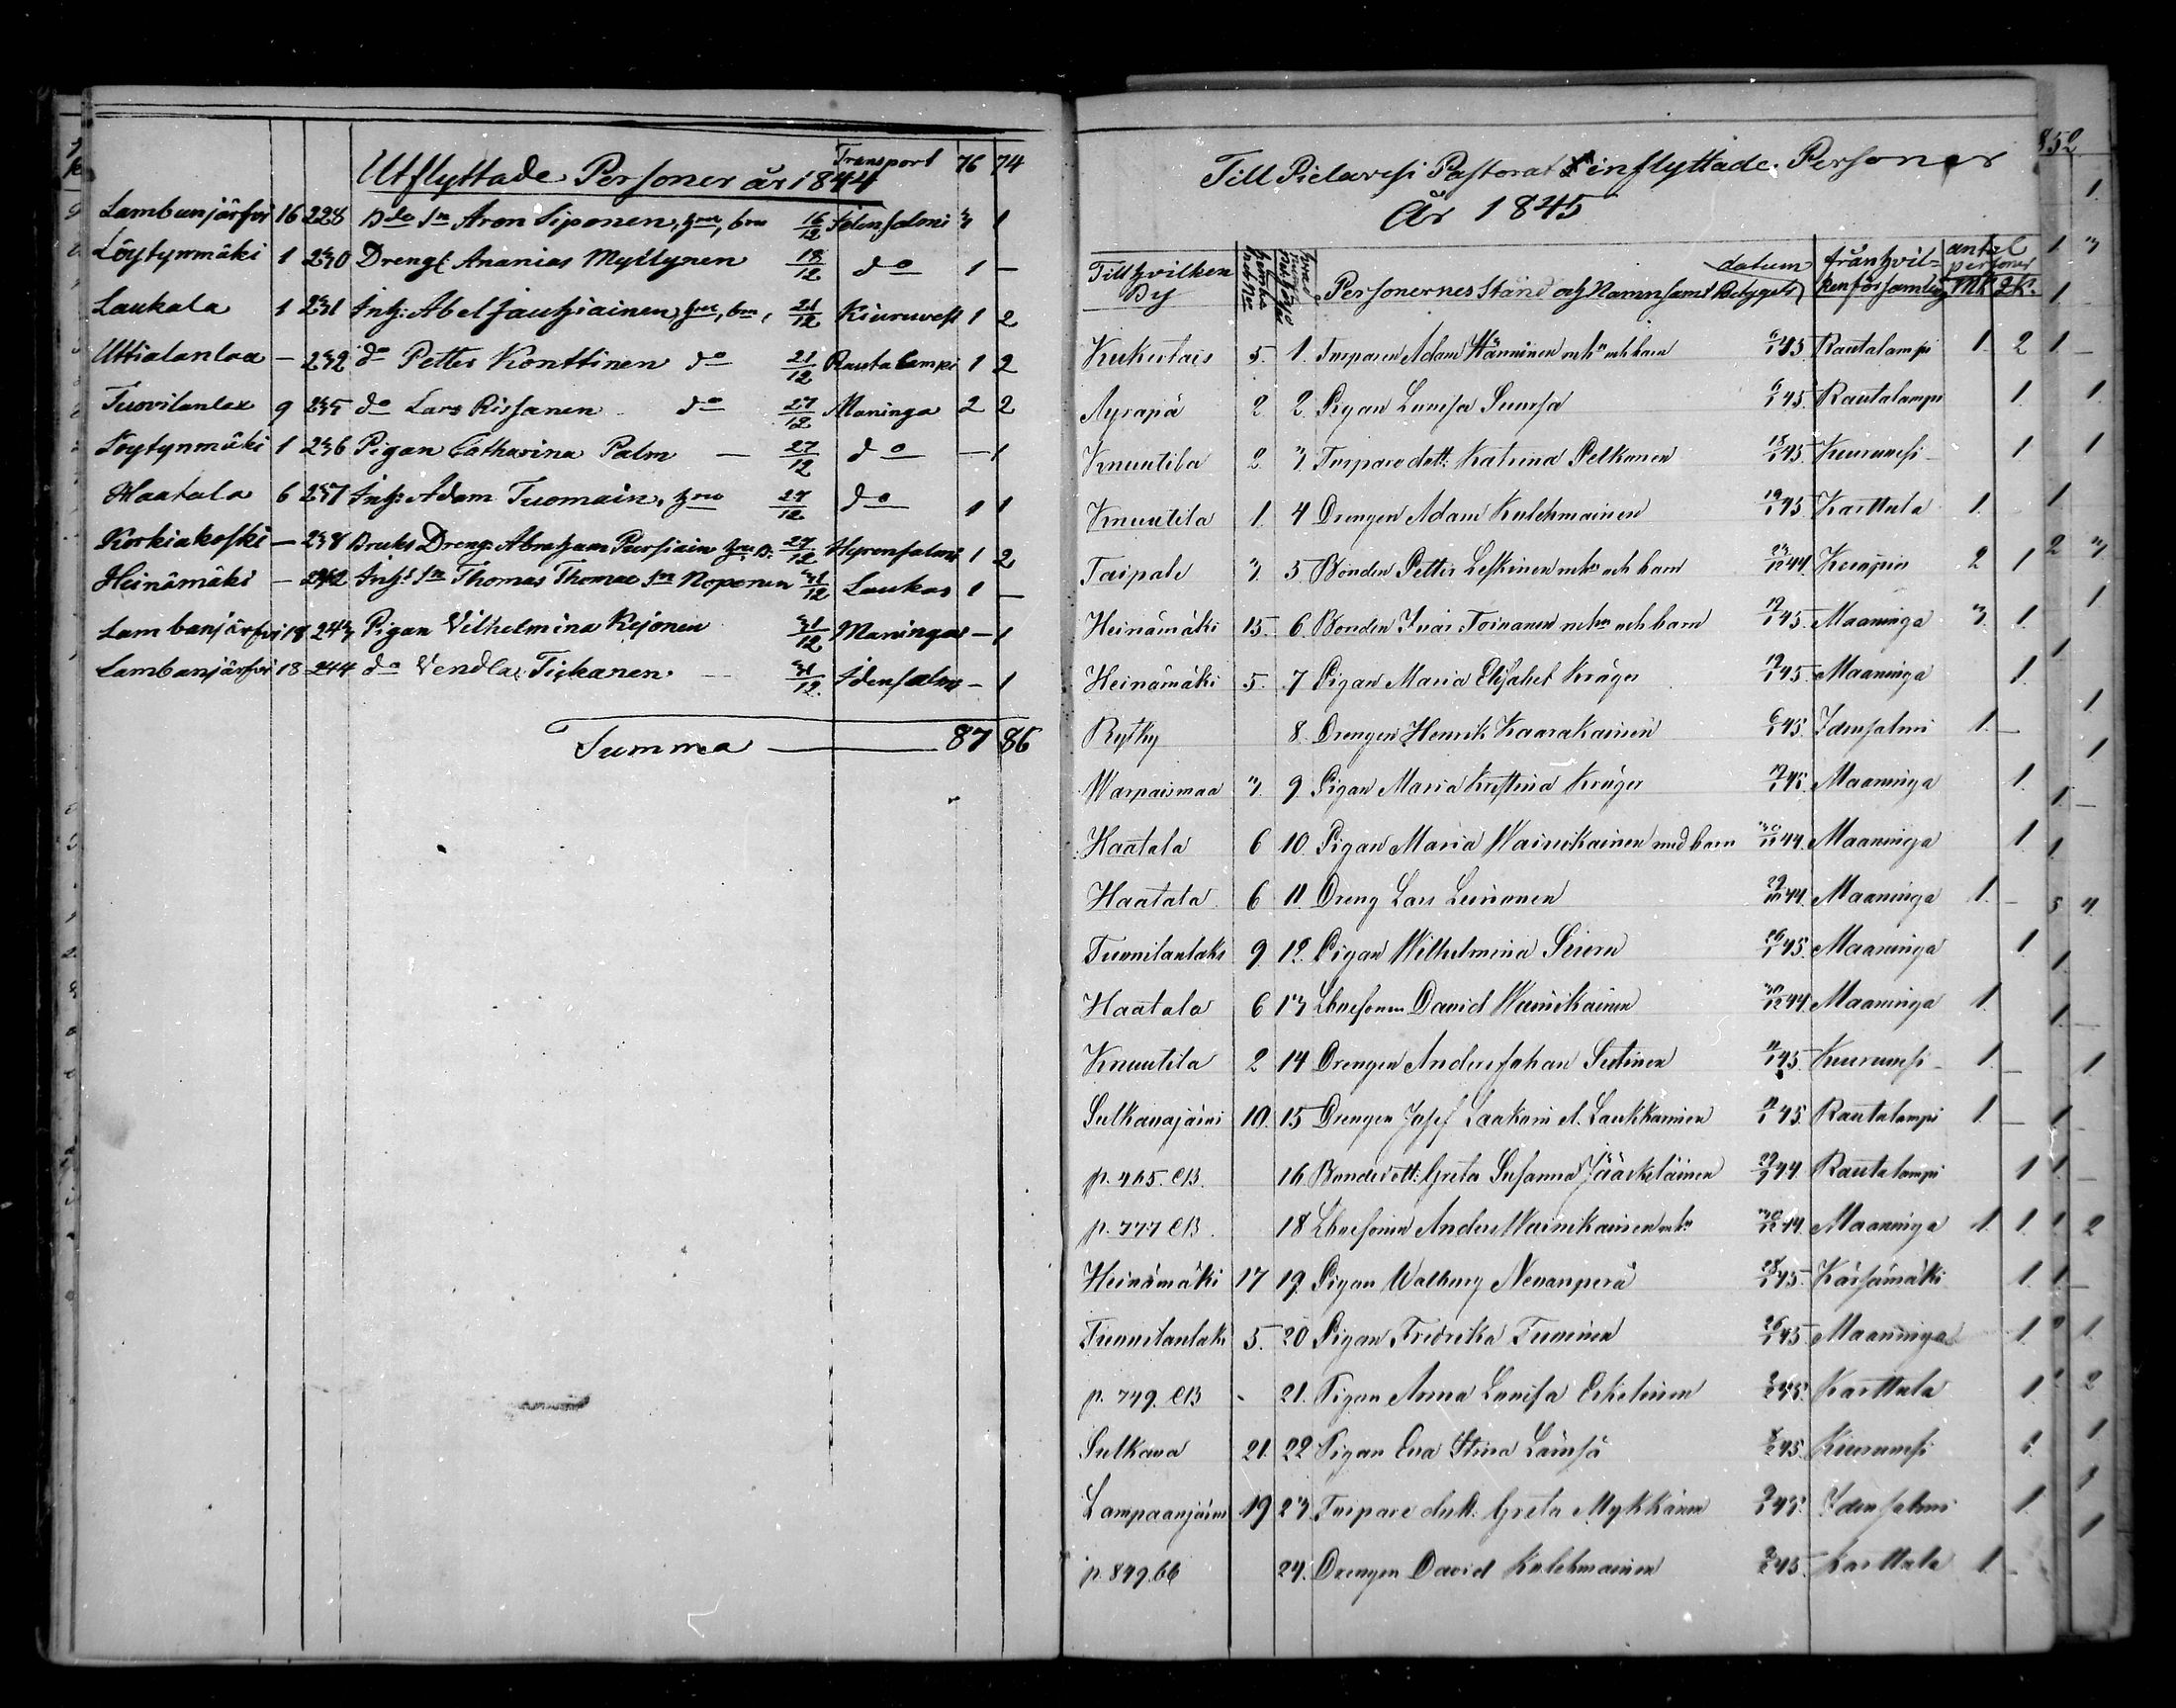 Utflyttade Personer år 1844 Transport 76 74
Lambanjärfvi 16 228 Bde Sn Aron Siponen, hru, brn 16/12 Idensalmi 3 1
Löytynmäki 1 230 Dreng: Ananias Myllynen 18/12 do 1 —
Laukala 1 231 Inh: Abel Jauhiainen, hru, brn, 21/12 Kiuruvesi 1 2
Uttialanlax — 232 do Petter Konttinen do 21/12 Rautalampi 1 2
Tuovilanlax 9 235 do Lars Rissanen do 27/12 Maninga 2 2
Löytynmäki 1 236 Pigan Catharina Palm — 27/12 do — 1
Haatala 6 237 Inh: Adam Tuomain, hru 27/12 do 1 1
Korkiakoski — 238 Bruks Dreng: Abraham Pursiain hru B. 27/12 Hyrensalmi 1 2
Heinämäki — 242 Inhs Sn Thomas Thomae Sn Noponen 31/12 Laukas 1 —
Lambanjärfvi 18 243 Pigan Vilhelmina Rejonen 31/12 Maninga — 1
Lambanjärfvi 18 244 do Vendla Tickanen 31/12 Idensalmi — 1
Summa — 87 86
852
Till Pielavesi Pastorat inflyttade Personer
År 1845
Till hvilken By Personernes Stånd och Namn samt datum Betygets från hvilken församling antal personer Mk Qk.
Kukutais 5. 1. Inhysen Adam Hänninen m hu och barn 6/1 45 Rautalampi 1. 2
Äyrapä 2 2. Pigan Lovisa Sunesa 6/1 45. Rautalampi 1.
Knuutila 2. 3 Torpare dott: Katrina Pelkonen 18/1 45. Kiuruvesi 1
Knuutila 1. 4 Drengen Adam Kulehmainen 19/1 45 Karttula 1.
Taipale 3. 5. Bonden Petter Leskinen m hu och barn 23/12 44. Kuopio 2 1
Heinämäki 15. 6. Bonden Ivar Toivanen m hu och barn 19/1 45. Maaninga 3. 1.
Heinämäki 5. 7 Pigan Maria Elisabet Kröger 19/1 45. Maaninga 1.
Rytky 8. Drengen Henrik Kaarakainen 6/1 45. Idensalmi 1. —
Warpaismaa 3. 9. Pigan Maria Kristina Kröger 19/1 45. Maaninga 1.
Haatala 6 10. Pigan Maria Wainikainen med barn 30/12 44. Maaninga 1
Haatala 6 11. Dreng Lars Leinonen 29/12 44. Maaninga 1. —
Tuovilanlaks 9. 12. Pigan Wilhelmina Seiern 26/1 45. Maaninga 1
Haatala 6 13 Lösesonen David Wainikainen 30/12 44. Maaninga 1.
Knuutila 2 14 Drengen Anders Johan Sutinen 11/1 45. Kiuruvesi 1. —
Sulkavajärvi 10. 15 Drengen Josef Laakoin el. Laukkainen 45. Rautalampi 1. —
p. 465. CB. 16 Bonde dott: Greta Susanna Jääskeläinen 29/9 44 Rautalampi 1
p. 777 CB. 18 Lösesonen Anders Wainikainen m hu 30/12 44. Maaninga 1. 1.
Heinämäki 17 19. Pigan Walborg Nevanperä 28/1 45. Kärsämäki 1.
Tuovilanlaks 5. 20 Pigan Fredrika Tuovinen 26/1 45. Maaninga 1.
p. 749. CB - 21. Pigan Anna Lovisa Eskelinen 2/2 45. Karttula 1.
Sulkava 21. 22 Pigan Eva Stina Lämsä 45. Kiuruvesi 1.
Lampaanjärvi 19 23. Torpare dott. Greta Mykkänen 45. Idensalmi 1.
p. 849. 66 24. Drengen David Kulehmainen 45. Karttula 1 —